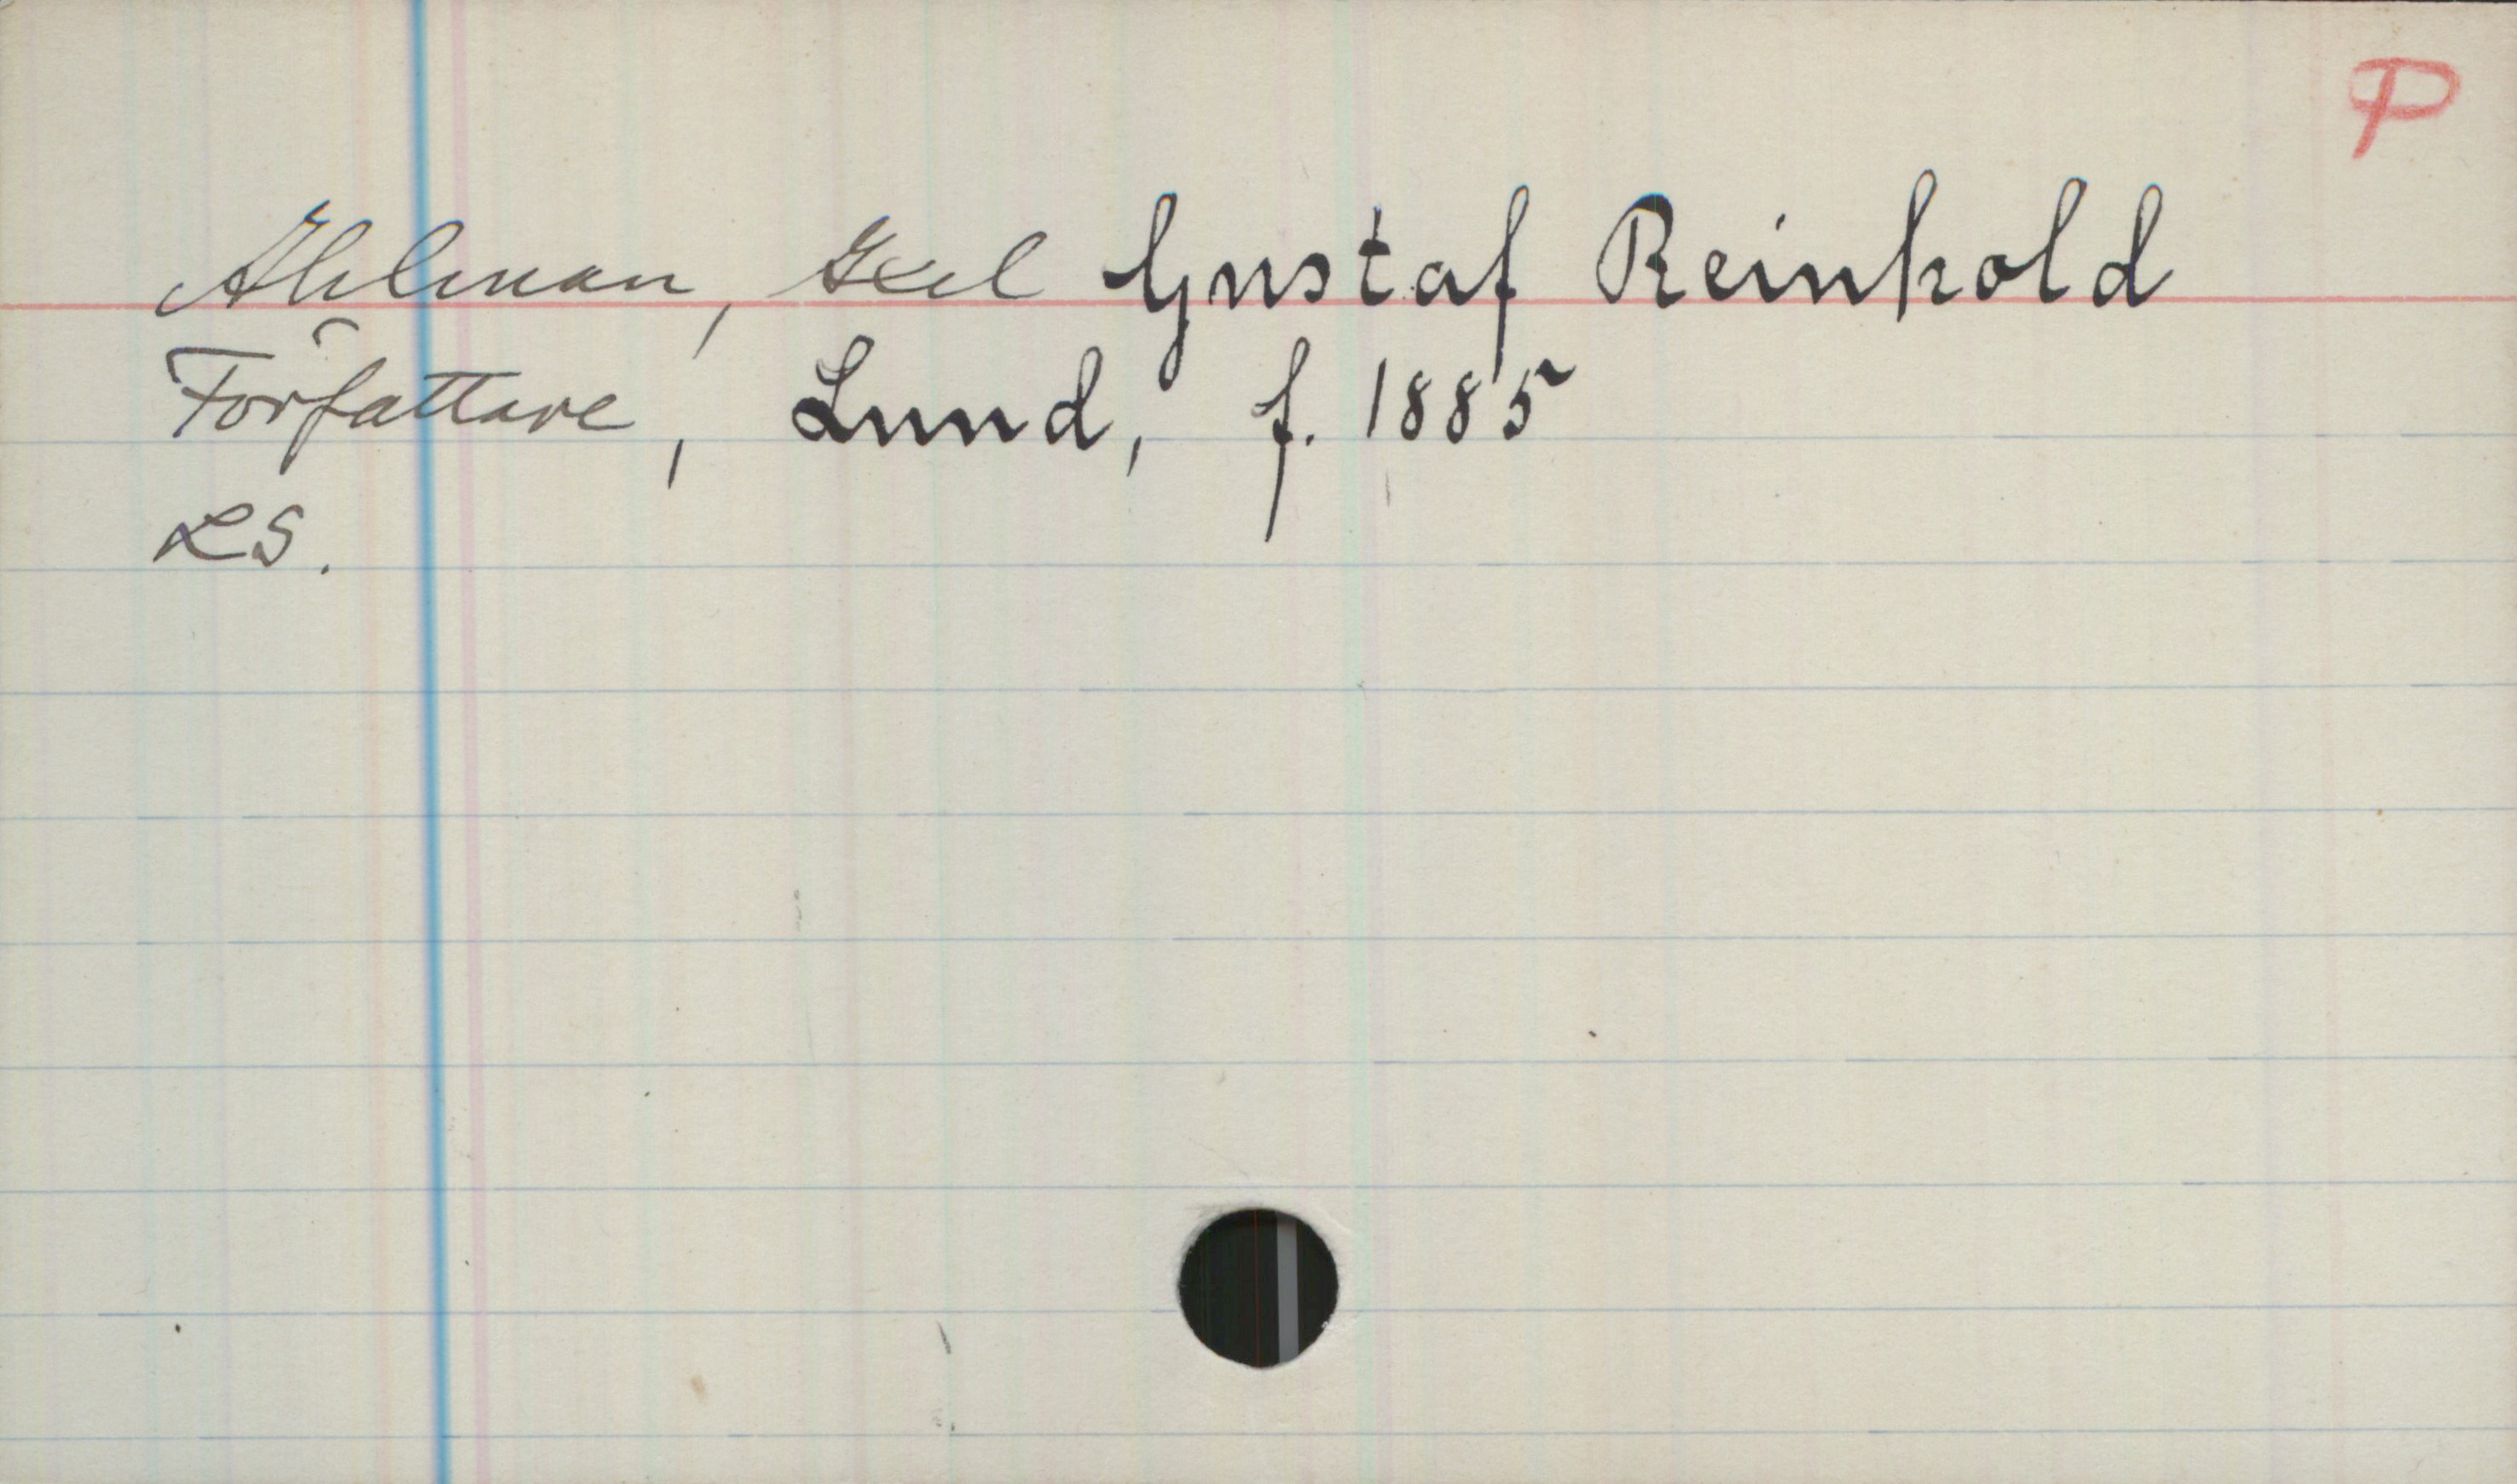 P
Ahlman, Axel Gustaf Reinhold
Författare, Lund, f. 1885
LS.